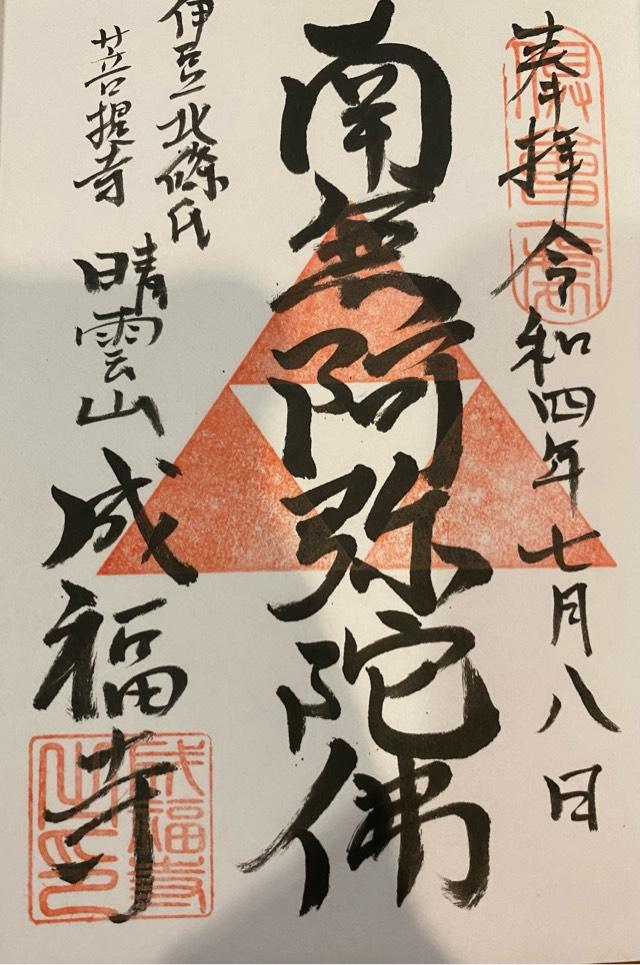 奉拝 令和四年七月八日
南無阿弥陀佛
伊豆北條氏
菩提寺
晴雲山 成福寺
成福寺
之印
倶會一處